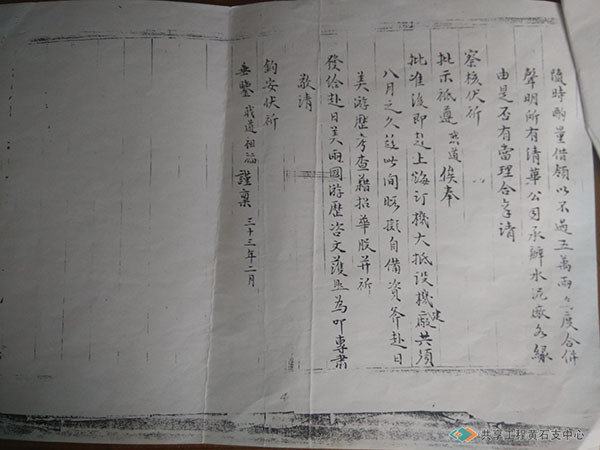 隨時酌量借領以不過五萬兩之度合併
聲明所有清華公司承辦水泥廠各緣
由是否有當理合稟請
察核伏祈
批示祗遵 職道俟奉
批准後即赴上海訂機大抵設機建廠共須
八月之久趁此間暇擬自備資斧赴日
美游歷考查藉招華股并祈
發給赴日美兩國游歷咨文護照為叩專肅
敬請
鈞安伏祈
垂鑒 職道祖 謹稟 三十三年二月
共享工程黄石支中心